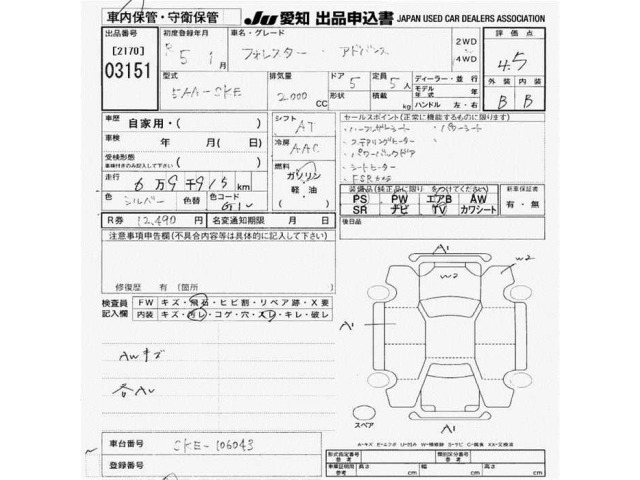 車内保管・守衛保管
JU 愛知 出品申込書 JAPAN USED CAR DEALERS ASSOCIATION
出品番号 初度登録年月 車名・グレード 評価点
[2170] R 5 1月 フォレスター・アドバンス 2WD 4WD 4.5
03151
型式 排気量 ドア 定員 ディーラー・並行 外装 内装
5AA-SKE 2.000 CC 5 5人 モデル年式 年 B B
形状 積載 kg ハンドル 左・右
車歴 自家用・( ) シフト AT セールスポイント(正常に機能するものに限ります)
・ハーフレザーシート ・パワーシート
車検 年 月( 日) 冷房 AAC ・ステアリングヒーター
受検形態 車検付きのみ記入して下さい ( ) ・パワーバックドア
燃料 ガソリン・軽・油・( ) ・シートヒーター
走行 6万9千915km ・FSRカメラ
色 シルバー 色替 色コード G1U
装備品(純正品に限り○をつけてください) 新車保証書
PS PW エアB AW 有・無
SR ナビ TV カワシート
R券 12,490円 名変通知期限 月 日 後日品
注意事項申告欄(不具合内容等は具体的に記入して下さい)
修復歴 有(箇所 )
検査員記入欄 FW キズ・飛石・ヒビ割・リペア跡・X要
内装 キズ・汚レ・コゲ・穴・スレ・キレ・破レ
AWキズ
各AU
A1
W2
W2
A1
A1
スペア
A-キズ E-エクボ U-凹み W-補修跡 S-サビ C-腐食 XX-交換済
車台番号 SKE-106043
登録番号
形式指定番号 参考 類別区分番号 参考
車車証明用 参考 長さ cm 幅 cm 高さ cm